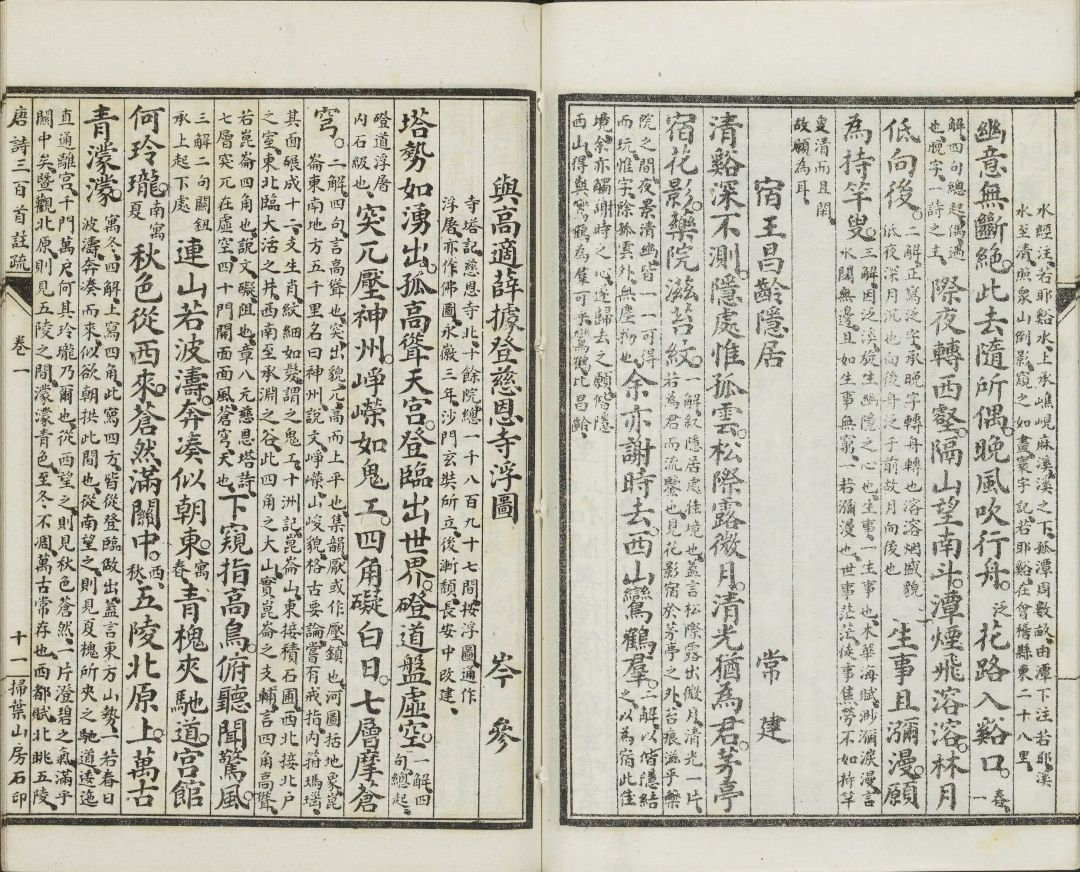 水經注、若耶谿水、上承嶕峴麻溪、溪之下、孤潭周數畝、由潭下注若耶溪、
水至清、照眾山倒影、窺之如畫、寰宇記、若耶谿在會稽縣東二十八里、
幽意無斷絕。此去隨所偶。晚風吹行舟。泛花路入谿口。春、一
解、四句總起、偶遇也、晚字、一詩之主、際夜轉西壑。隔山望南斗。潭煙飛溶溶。林月
低向後。二解正寫泛字、承晚字轉舟轉也、溶溶烟盛貌、低夜深月沉也、向後舟泛于前、故月向後也、生事且瀰漫。願
為持竿叟。三解、因泛溪發生幽隱之心也、生事、一生事也、木華海賦、渺瀰淡漫、言水闊無邊、且如生事無窮、一若瀰漫也、世事茫茫、徒事焦勞、不如持竿
叟清而且閑、故願為耳、
宿王昌齡隱居 常建
清谿深不測。隱處惟孤雲。松際露微月。清光猶為君。茅亭
宿花影。藥院滋苔紋。一解敘隱居處佳境也、蓋言松際露出微月、清光一片、若為君而流鑒也、見花影宿於茅亭之外、苔痕滋乎藥
院之間、夜景清幽、皆一一可得而玩、惟字、除孤雲外、無塵物也、余亦謝時去。西山鸞鶴羣。二解以偕隱結之、以為宿此佳
境、余亦觸謝時之心、遂歸去之願、偕隱西山、得與鸞鶴為隻可乎、鸞鶴、比昌齡、
與高適薛據登慈恩寺浮圖 岑參
寺塔記、慈恩寺、北十餘院、總一千八百九十七間、按浮圖、通作
浮屠、亦作佛圖、永徽三年、沙門玄奘所立、後漸頹、長安中改建、
塔勢如湧出。孤高聳天宮。登臨出世界。磴道盤虛空。一解、四句總起、
磴道浮屠內石級也、突兀壓神州。崢嶸如鬼工。四角礙白日。七層摩蒼
穹。二解、四句言高聳也、突出貌、兀高而上平也、集韻、厭或作壓、鎮也、河圖括地象、崑崙東南地方五千里、名曰神州、說文、崢嶸、山峻貌、格古要論、嘗有戒指、內嵌瑪瑙、
其面碾成十二支生肖、紋細如髮、謂之鬼工、十洲記、崑崙山、東接積石圃、西北接北戶之室、東北臨大活之井、西南至承淵之谷、此四角之大山、實崑崙之支輔、言四角高聳、
若崑崙四角也、說文、礙、阻也、章八元慈恩塔詩、七層突兀在虛空、四十門開面面風、蒼穹、天也、下窺指高鳥。俯聽聞驚風。
三解二句關鈕承上起下處連山若波濤。奔湊似朝東。寓春青槐夾馳道。宮館
何玲瓏。南寓夏秋色從西來。蒼然滿關中。西、秋、五陵北原上。萬古
青濛濛。寓冬、四解、上寫四角、此寫四方、皆從登臨做出、蓋言東方山勢、一若春日波濤、奔湊而來、似欲朝拱此間也、從南望之、則見夏槐所夾之馳道、逶迤
直通離宮、千門萬戶、何其玲瓏乃爾也、從西望之、則見秋色蒼然、一片澄碧之氣、滿乎關中矣、暨觀北原、則見五陵之間、濛濛青色、至冬不凋、萬古常存也、西都賦、北眺五陵、
唐詩三百首註疏 卷一 十一 掃葉山房石印